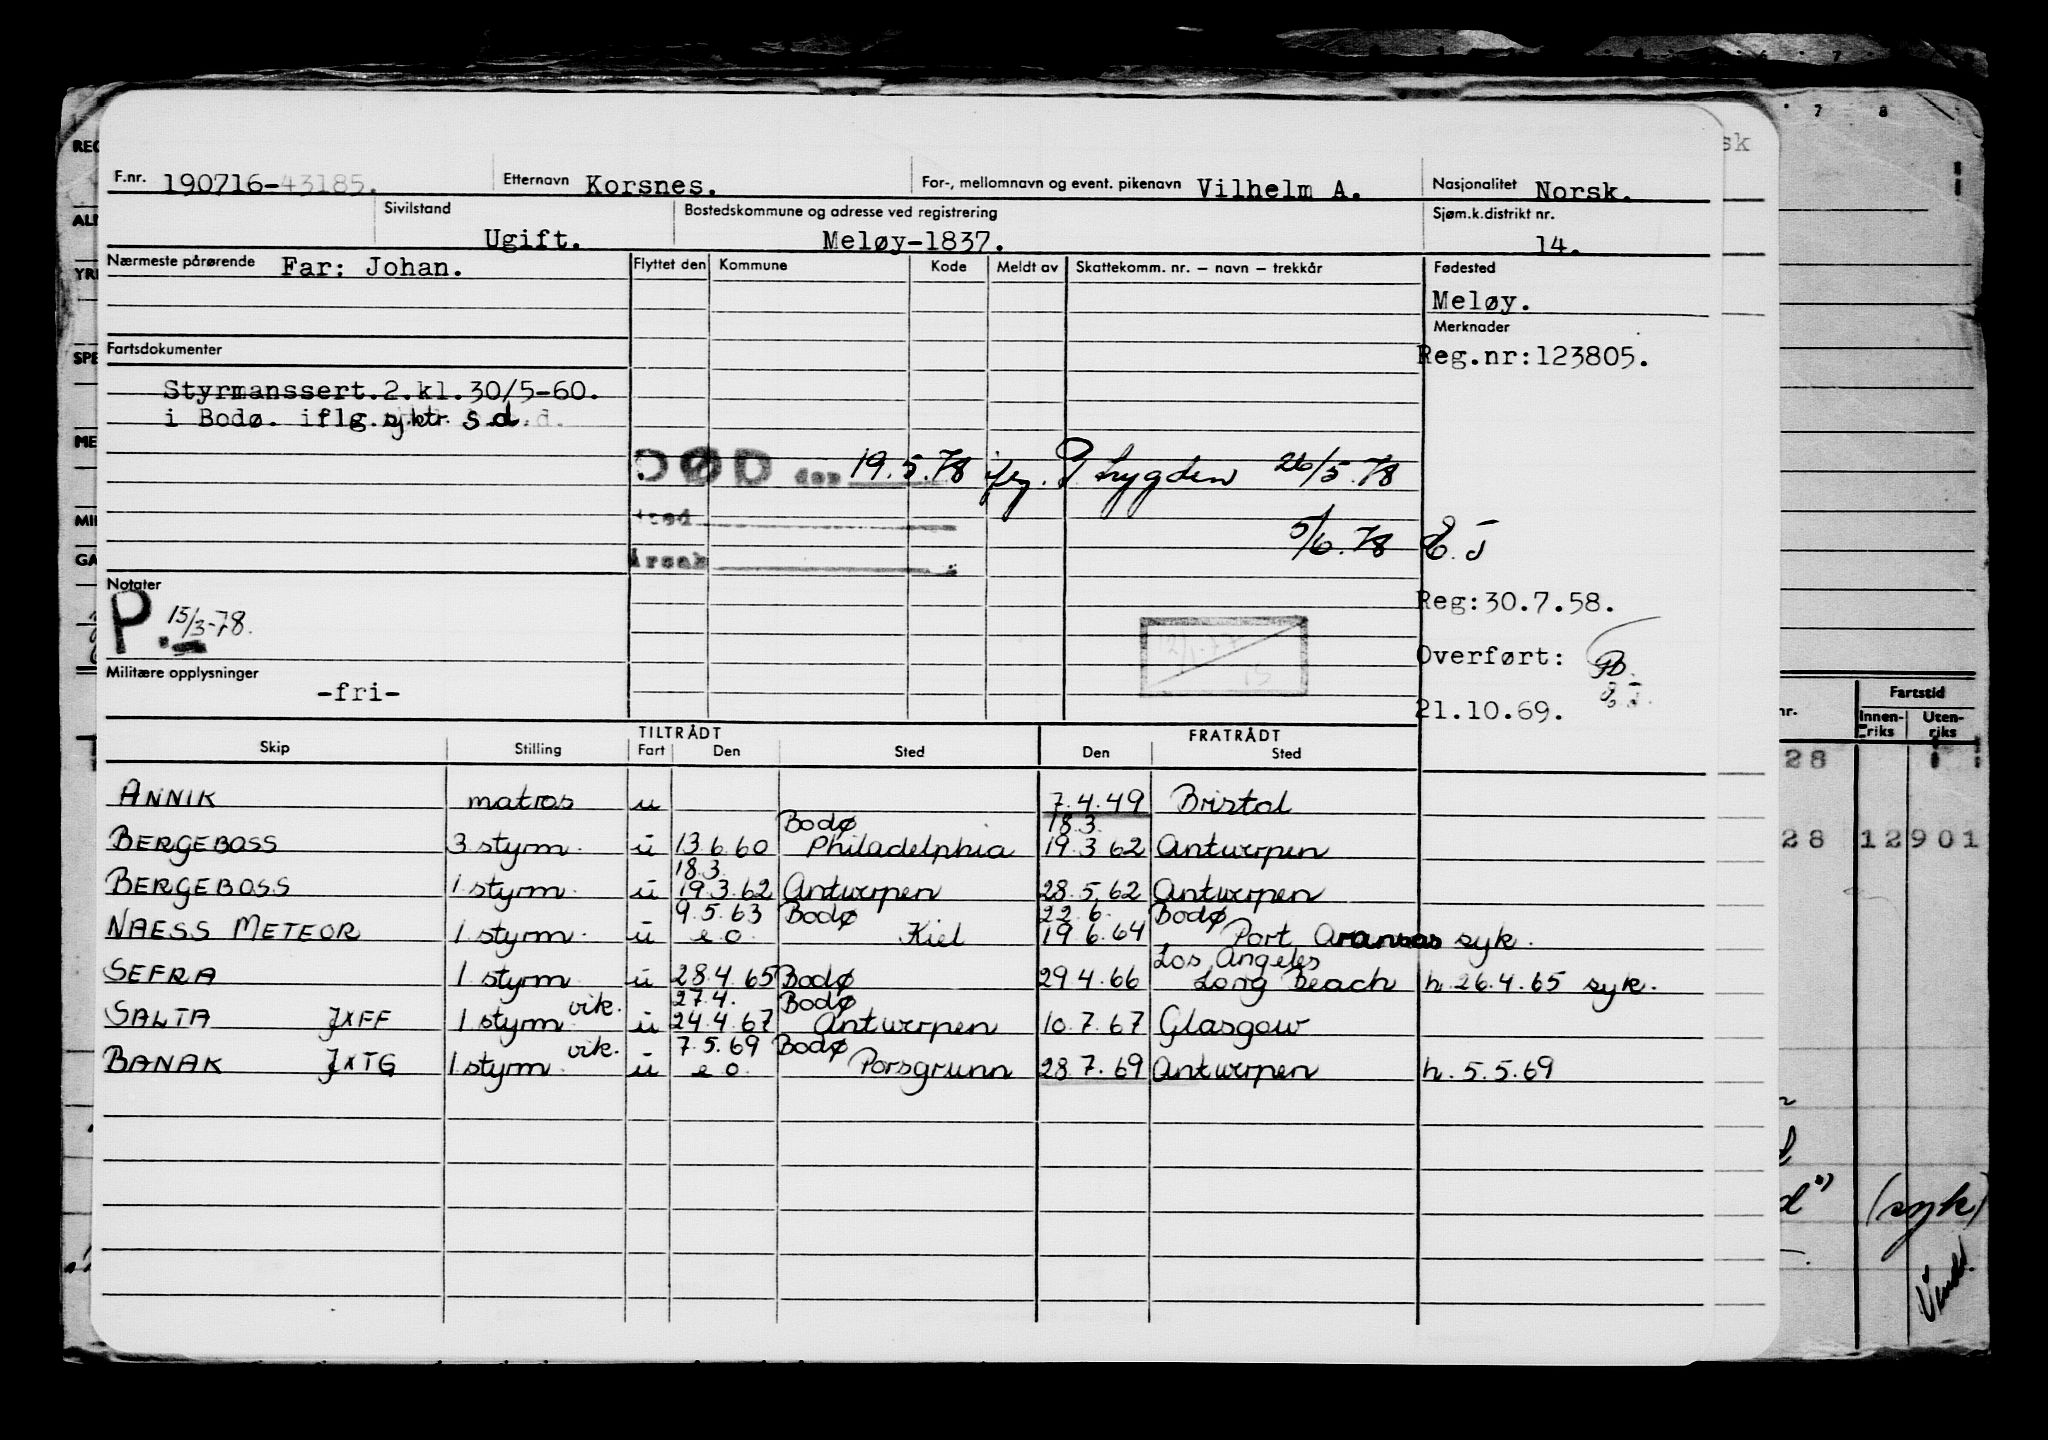 F.nr. 190716-43185. Etternavn Korsnes. For-, mellomnavn og event. pikenavn Vilhelm A. Nasjonalitet Norsk.
Sivilstand Ugift. Bostedskommune og adresse ved registrering Meløy-1837. Sjøm.k.distrikt nr. 14.
Nærmeste pårørende Far: Johan. Flyttet den Kommune Kode Meldt av Skattekomm. nr. – navn – trekkår Fødested
Meløy.
Merknader
Reg.nr:123805.
Fartsdokumenter
Styrmanssert.2.kl.30/5-60.
i Bodø. iflg. sj.ktr. s.d.
DØD den 19.5.78 26/5.78
Sted
Årsak
5/6.78
Notater
P. 15/3-78.
Reg:30.7.58.
Overført:
21.10.69.
Militære opplysninger
-fri-
TILTRÅDT FRATRÅDT
Skip Stilling Fart Den Sted Den Sted
ANNIK matros u 7.4.49 Bristol
Bodø 18.3.
BERGEBOSS 3 styrm. u 13.6.60 Philadelphia 19.3.62 Antwerpen
18.3.
BERGEBOSS 1 styrm. u 19.3.62 Antwerpen 28.5.62 Antwerpen
9.5.63 Bodø 22.6. Bodø
NAESS METEOR 1 styrm. u e.o. Kiel 19.6.64 Port Aransas syk.
Los Angeles
SEFRA 1 styrm u 28.4.65 Bodø 29.4.66 Long Beach h. 26.4.65 syk.
vik. 27.4. Bodø
SALTA JXFF 1 styrm u 24.4.67 Antwerpen 10.7.67 Glasgow
vik. 7.5.69 Bodø
BANAK JXTG 1 styrm. u e.o. Porsgrunn 28.7.69 Antwerpen h. 5.5.69
7 8
sk
REG
YR
SPE
ME
MI
GA
nr. Fartstid
Innen-riks Uten-riks
28
28 12901
(syk)